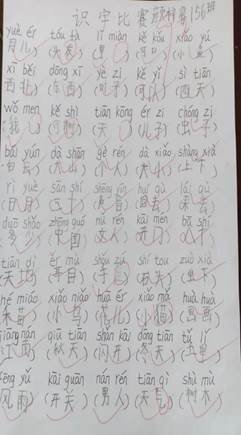 识字比赛 156班
yuè ér tóu fà lǐ miàn kě kǒu xiǎo yú
(月儿) (头发) (里面) (可口) (小鱼)
xī běi dōng xī yè zi kě yǐ sì tiān
(西北) (东西) (叶子) (可以) (四天)
wǒ men kě shì tiān kōng ér zi chóng zi
(我们) (可是) (天) (儿子) (虫子)
bái yún dà shān gè rén dà xiǎo shàng xià
(白云) (大山) (个人) (大小) (上下)
rì yuè sān shí shēng yīn huí qù lái qù
(日月) (三十) (声音) (回去) (来去)
duō shǎo zhōng guó nǚ rén kāi mén bā shí
(多少) (中国) (女人) (开门) (八十)
tiān dì ěr mù shǒu zú shí tou zuǒ xià
(天地) (耳目) (手足) (石头)
hé miáo xiǎo niǎo huā ér xiǎo māo huà huà
(禾苗) (小鸟) (花儿) (小猫) (画画)
jiāng nán qiū tiān shǎn kāi dōng tiān tǔ lǐ
(江南) (秋天) (闪开) (冬天) (土里)
fēng yǔ kāi guān nán rén tiān qì shù mù
(风雨) (开关) (男人) (天气) (树木)